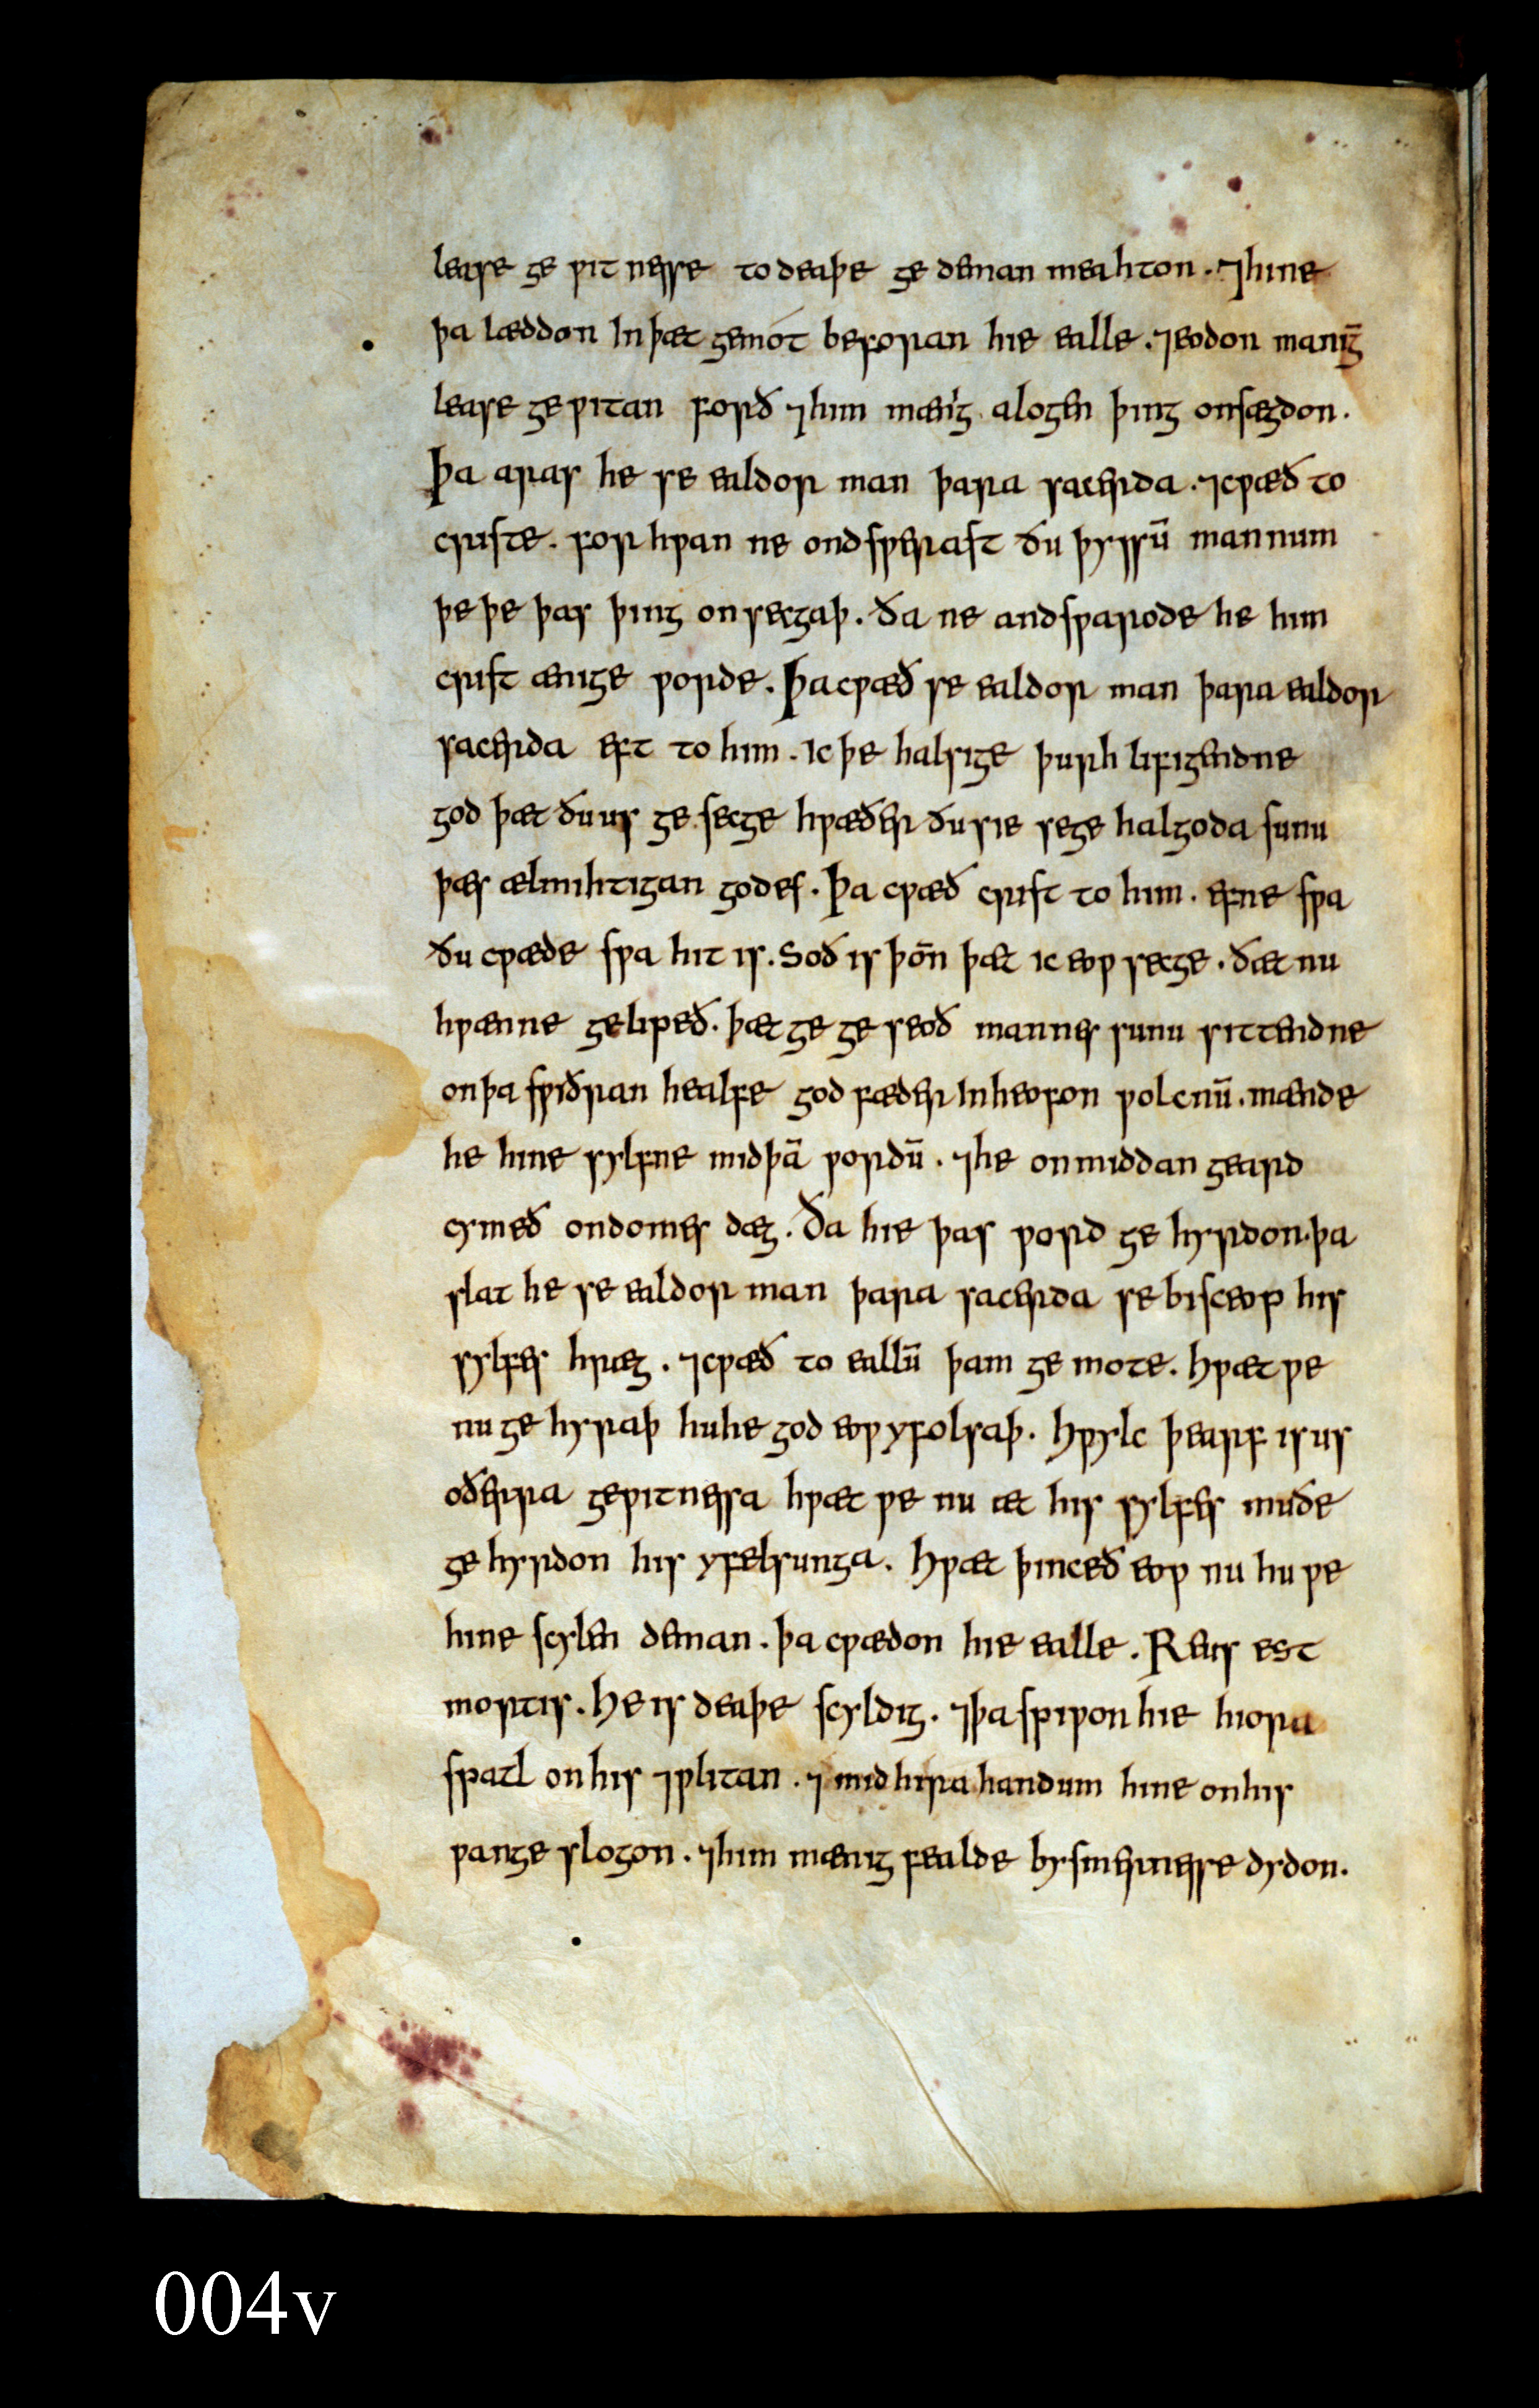 lease ge ƿitnesse to deaþe ge deman meahton . ⁊hine
þa læddon In þæt gemót beforan hie ealle . ⁊eodon maniḡ
lease ge ƿitan forð ⁊him mænig alogen þing onsægdon .
Þa aras he se ealdor man þara sacerda . ⁊cƿæð to
criste . for hƿan ne ondsƿerast ðu þyssū mannum
þe þe þas þing on secgaþ . ða ne andsƿarode he him
crist ænige ƿorde . Þa cƿæð se ealdor man þara ealdor
sacerda eft to him . ic þe halsige þurh lifigendne
god þæt ðu us ge secge hƿæðer ðu sie se ge halgoda sunu
þæs ælmihtigan godes . Þa cƿæð crist to him . efne sƿa
ðu cƿæde sƿa hit is . Soð is þōn þæt ic eoƿ secge . ðæt nu
hƿænne gelipeð . þæt ge ge seoð mannes sunu sittendne
on þa sƿiðran healfe god fæder In heofon ƿolcnū . mænde
he hine sylfne mid þā ƿordū . ⁊he on middan geard
cymeð on domes dæg . Ða hie þas ƿord ge hyrdon . þa
slat he se ealdor man þara sacerda se bisceop his
sylfes hræg . ⁊cƿæð to eallū þam ge mote . Hƿæt ƿe
nu ge hyraþ hu he god eoƿ yfolsaþ . Hƿylc þearf is us
oðerra geƿitnessa hƿæt ƿe nu æt his sylfes muðe
ge hyrdon his yfelsunga . Hƿæt þinceð eoƿ nu hu ƿe
hine scylen deman . þa cƿædon hie ealle . Reus est
mortis . He is deaþe scyldig . ⁊þa spiƿon hie hiora
spatl on his ⁊ƿlitan . ⁊ mid hira handum hine on his
ƿange slogon . ⁊him mænig fealde bysmernesse dydon .
004v